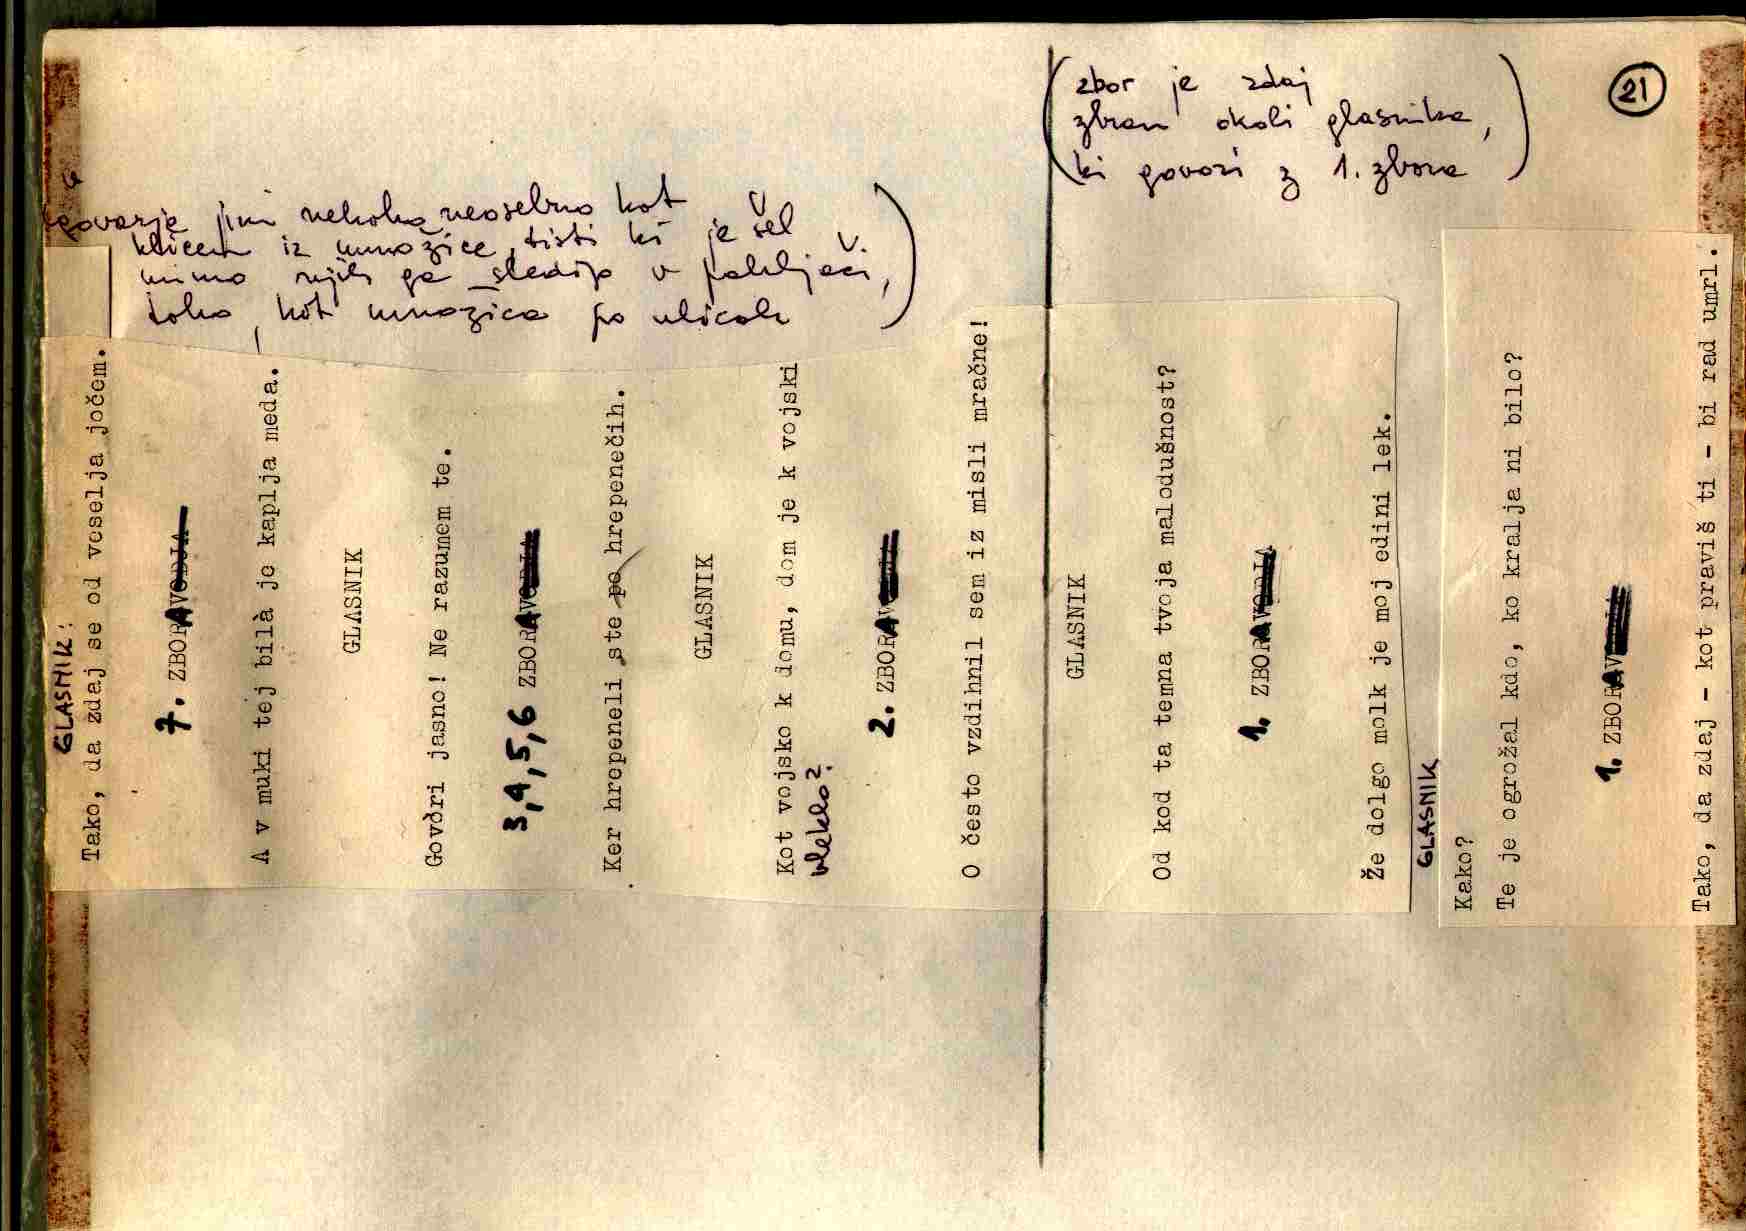 21
(zbor je zdaj
zbran okoli glasnika,
ki govori z 1. zbora)
jim nekoko neosebno kot
iz množice, tisti ki je šel
mimo njih ga sledijo v
toko, kot množica po ulicah)
GLASNIK:
Tako, da zdaj se od veselja jočem.
7. ZBORA
A v muki tej bilà je kaplja meda.
GLASNIK
Govŏri jasno! Ne razumem te.
3,4,5,6 ZBORA
Ker hrepeneli ste po hrepenečih.
GLASNIK
Kot vojsko k domu, dom je k vojski
vleklo?
2. ZBORA
O često vzdihnil sem iz misli mračne!
GLASNIK
Od kod ta temna tvoja malodušnost?
1. ZBORA
Že dolgo molk je moj edini lek.
GLASNIK
Kako?
Te je ogrožal kdo, ko kralja ni bilo?
1. ZBORA
Tako, da zdaj - kot praviš ti - bi rad umrl.